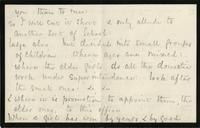 you then to me:
So I will cut it short & only allude to
another sort of School:
large also but divided into small groups
of children Where ages are mixed:
where the elder girls do all the domestic
work under Superintendence: look after
the small ones: &
& where as promotion to approve them, the
older ones, to the
When a girl has been by years & by good